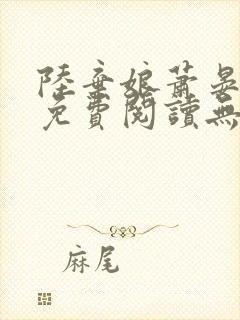 陸棄娘蕭晏
免費閱讀無
麻尾